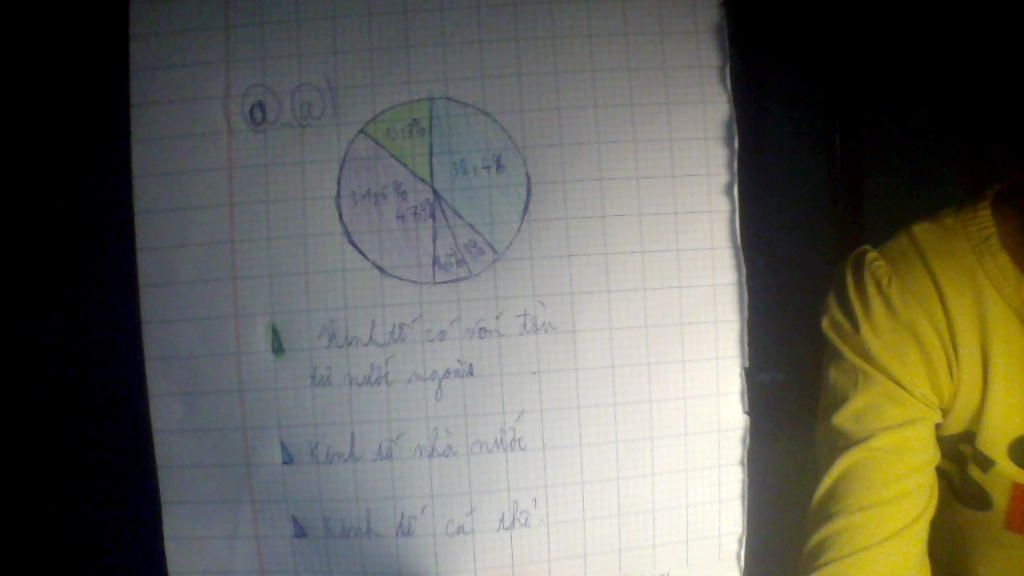 a a
38,4%
8%
31,6%
47,9%
Kinh tế có vốn đầu
tư nước ngoài
Kinh tế nhà nước
Kinh tế cá thể